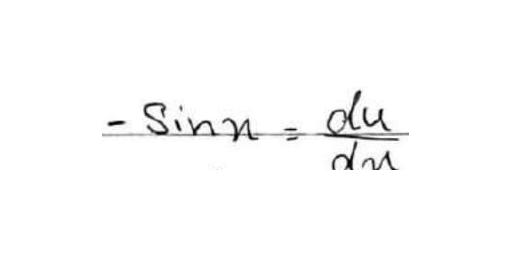 - Sinx = du/dx